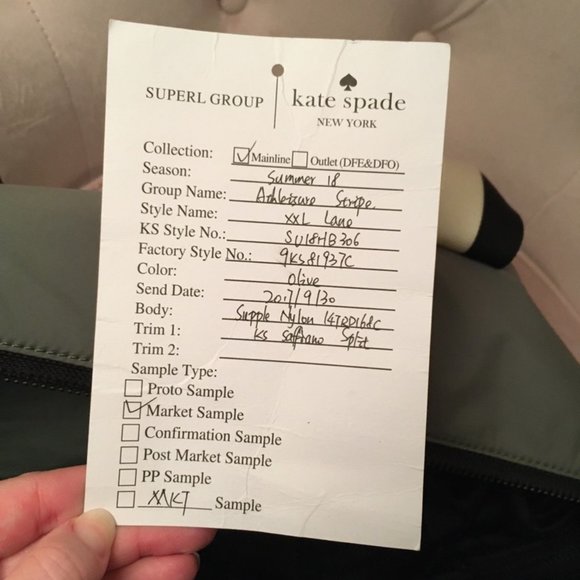 SUPERL GROUP | kate spade
NEW YORK
Collection: Mainline Outlet (DFE&DFO)
Season: Summer 18
Group Name: Athleisure Stripe
Style Name: XXL Lane
KS Style No.: SU18HB306
Factory Style No.: 9KS81937C
Color: Olive
Send Date: 2017/9/30
Body: Supple Nylon
Trim 1: KS Saffiano Split
Trim 2:
Sample Type:
Proto Sample
Market Sample
Confirmation Sample
Post Market Sample
PP Sample
Sample